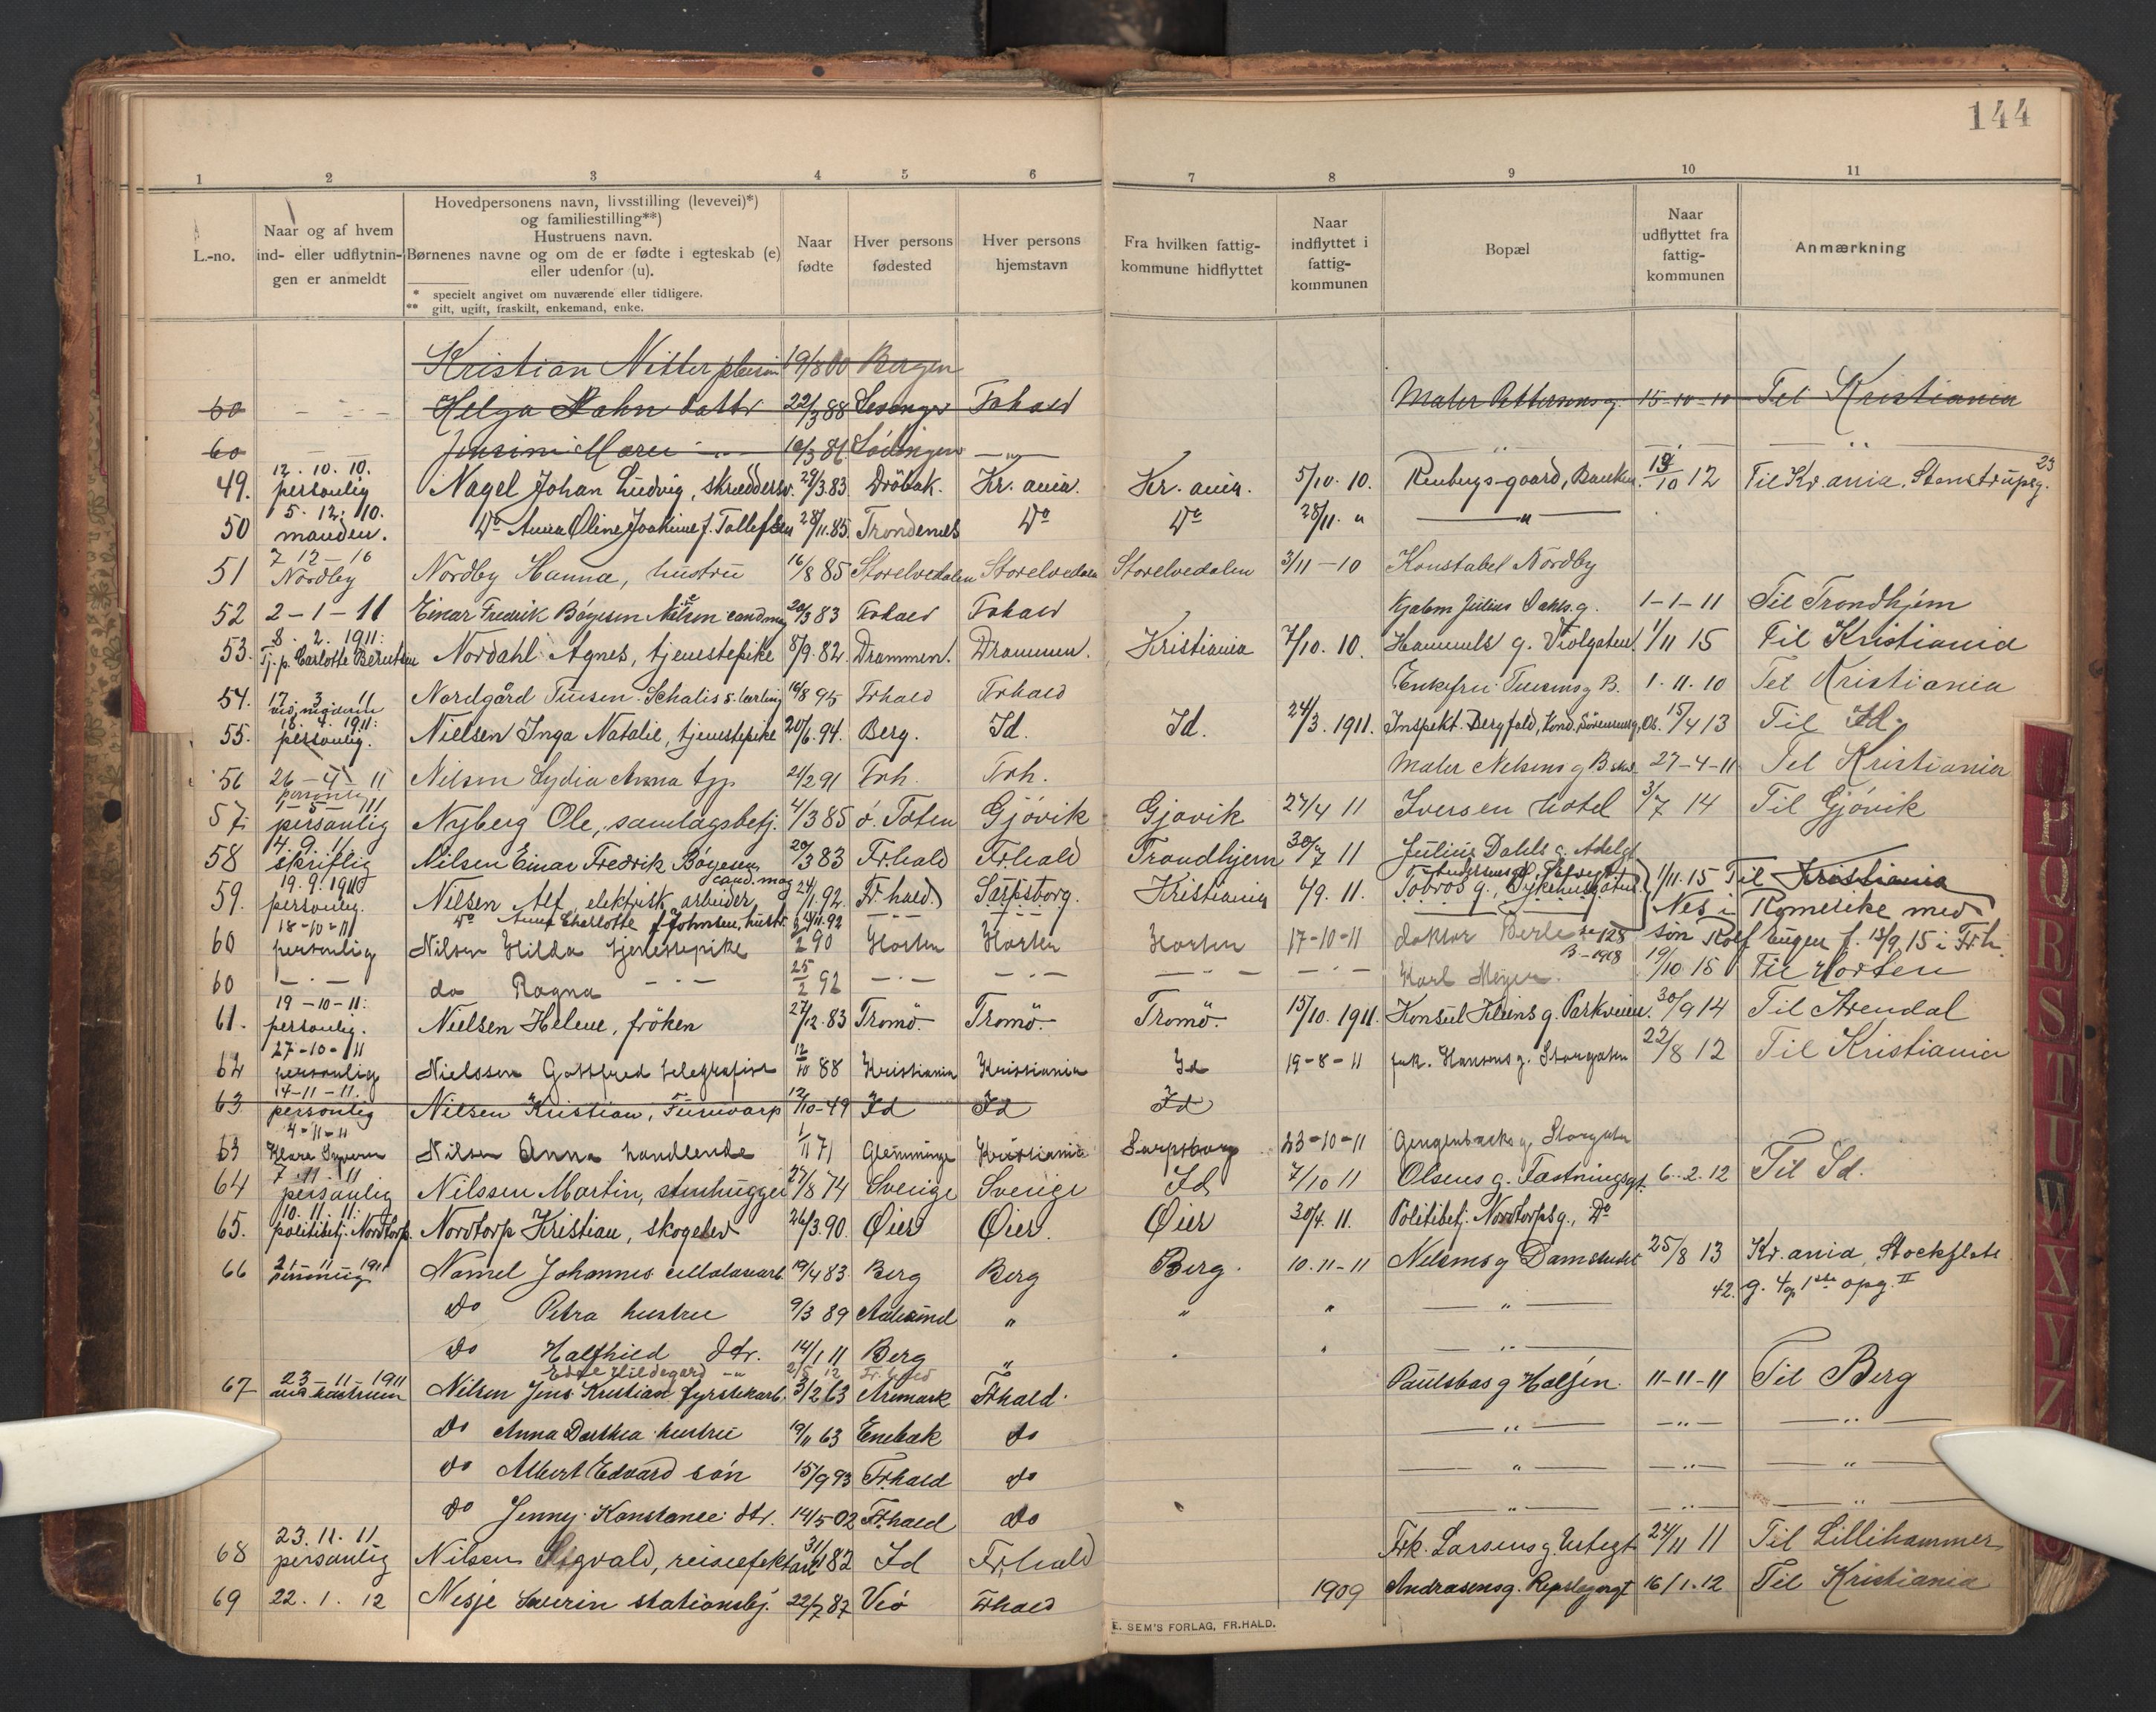 144
1 2 3 4 5 6 7 8 9 10 11
L.-no.
Naar og af hvem ind- eller udflytnin- gen er anmeldt
Hovedpersonens navn, livsstilling (levevei)*)
og familiestilling**)
Hustruens navn.
Børnenes navne og om de er fødte i egteskab (e)
eller udenfor (u).
* specielt angivet om nuværende eller tidligere.
** gift, ugift, fraskilt, enkemand, enke.
Naar fødte
Hver persons fødested
Hver persons hjemstavn
Fra hvilken fattig- kommune hidflyttet
Naar indflyttet i fattig- kommunen
Bopæl
Naar udflyttet fra fattig- kommunen
Anmærkning
Kristian Nitter 19/8 00 Bergen
60 Helga 22/3 88 Frhald 15-10-10 Til Kristiania
60
49. 12. 10. 10. personlig Nagel Johan Ludvig, skræddersv. 29/3.83. Dröbak. Kr. ania. Kr. ania. 5/10. 10. 10 12 Til Kr. ania, Stenstrupsg. 23
50 5. 12. 10. manden. Do Anna Oline Joakime f. Tollefsen 28/11.85. Trondenes Do Do 28/11. " "
51 7 12 - 10 Nordby Nordby Hanna, hustru 16/8 85 Storelvedalen Storelvedalen Storelvedalen 3/11 - 10 Konstabel Nordby
52 2-1-11 Einar Fredrik Böyesen Nilsen cand mag 20/3 83 Frhald Frhald Julius Dahls g. 1-1-11 Til Trondhjem
53. 8. 2. 1911: Tj. p. Carlotte Berntsen Nordahl Agnes, tjenestepike 8/9. 82. Drammen. Drammen. Kristiania 7/10. 10. Hammels g. Violgaten. 1/11 15 Til Kristiania
54. 17. 3. 11 Nordgård 16/8 95 Frhald Frhald 1. 11. 10 Til Kristiania
55. 18. 4. 1911: personlig. Nielsen Inga Natalie, tjenestepike 20/6. 94. Berg. Id. Id. 24/3. 1911. Inspekt. Bergfald, 15/4 13 Til Id.
56 26-4-11 personlig Nilsen Lydia Anna 21/2 91 Frh. Frh. Maler Nilsens g 27-4-11 Til Kristiania
57. 1-5-11 personlig Nyberg Ole, samlagsbetj. 4/3 85 ö. Toten Gjövik Gjövik 27/4 11 Iversen hotel 3/7 14 Til Gjövik
58 4. 9. 11 skriftlig Nilsen Einar Fredrik Böyesen cand. mag 20/3 83 Fr.hald Fr.hald Trondhjem 30/7 11 Julius Dahls g. Adelgt
59. 19. 9. 1911 personlig. Nilsen Alf, elektrisk arbeider 24/1. 92. Fr. hald. Sarpsborg. Kristiania 6/9. 11. Tobros g., Sykehusgaten. 1/11. 15 Til Kristiania
Do Anna Charlotte f. Johnsen, hustr. 11.92 Nes i Romerike med
60 18-10-11 personlig Nilsen Hilda tjenestepike 2 90 Horten Horten Horten 17-10-11 doktor Berle sön Rolf Eugen f. 13/9 15 i Frh.
60 do Ragna 25/2 92 Karl Meyer. 19/10 15 Til Horten
61. 19-10-11: personlig. Nielsen Helene, fröken 27/12. 83 Tromö. Tromö. Tromö. 15/10. 1911. Konsul Kleins g. Parkveien. 30/9 14 Til Arendal
62 27-10-11 personlig Nielssen Gottfred telegrafist 12/10 88 Kristiania Kristiania Id 19-8-11 frk. Hansens g. Storgaten 22/8 12 Til Kristiania
63 14-11-11. personlig Nilsen Kristian, Furuvarp 12/10-49 Id Id Id
63 4-11-11 Klara Nilsen Anna handlende 1/11 71 Glemminge Kristiania Sarpsborg 23-10-11 Gengenbachs g. Storgaten
64 7. 11. 11 personlig Nilssen Martin, stenhugger 27/8 74 Sverige Sverige Id 7/10 11 Olsens g. Fæstningsgt. 6. 2. 12 Til Id.
65. 10. 11. 11: politibetj. Nordtorp. Nordtorp Kristian, skogelev 26/3. 90. Öier Öier. Öier 30/4. 11. Politibetj. Nordtorps g., Do
66 21-11-1911 personlig Namel Johannes cellulosearb. 19/4 83 Berg Berg Berg. 10. 11-11 Nilsens g Damstredet 25/8 13 Kr. ania, Stockflets
Do Petra hustru 9/3 89 " " " " 42. g. 49 1ste opg. II
Do Halfhild dtr. 14/1 11 Berg "
Edel Hildegard
67 23-11-1911 Nilsen Jens Kristian fyrstikarb. 3/2 63 Aremark Frhald. Paulsbos g 11-11-11 Til Berg
Do Anna Dorthea hustru 19/11 63 Enebak do
do Albert Edvard sön 15/9 93 Frhald do
do Jenny Konstance dtr. 14/5 02 Frhald do
68 23. 11. 11. personlig Nilsen Sigvald, 31/ 82 Id Fr.hald Frk. Larsens g. 24/11 11 Til Lillihammer
69 22. 1. 12 Nesje Severin stationsbtj. 22/7 87 Veö Frhald 1909 Andrasens g. Repslagergt 16/1. 12 Til Kristiania
E. SEM'S FORLAG, FR.HALD.
P Q R S T U W X Y Z